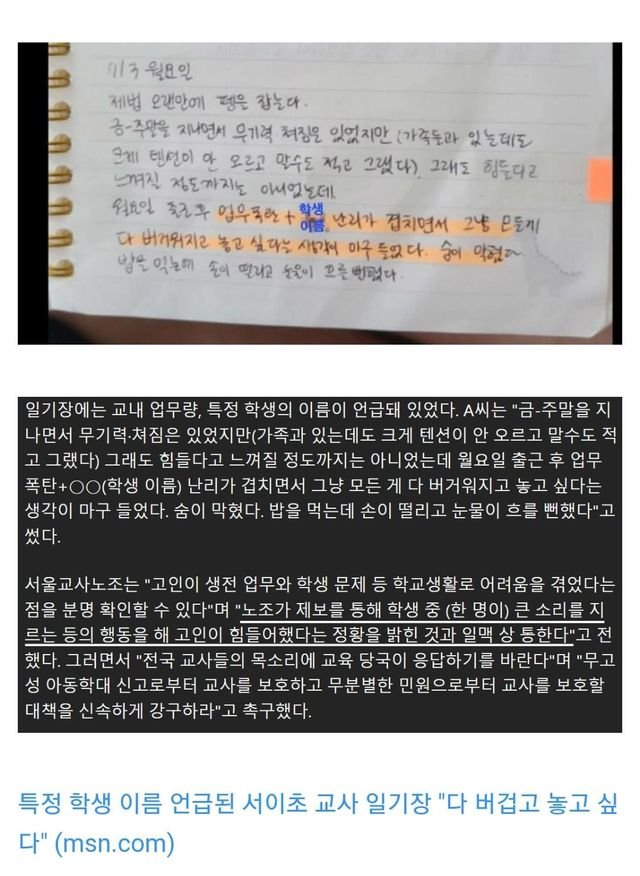 7/3 월요일
제법 오랜만에 펜을 잡는다.
금-주말을 지나면서 무기력 쳐짐은 있었지만 (가족들과 있는데도
크게 텐션이 안 오르고 말수도 적고 그랬다). 그래도 힘들다고
느껴질 정도까지는 아니었는데
월요일 출근 후 업무폭탄 + 학생 이름 난리가 겹치면서 그냥 모든게
다 버거워지고 놓고 싶다는 생각이 마구 들었다. 숨이 막혔다.
밥을 먹는데 손이 떨리고 눈물이 흐를 뻔했다.
일기장에는 교내 업무량, 특정 학생의 이름이 언급돼 있었다. A씨는 "금-주말을 지
나면서 무기력·쳐짐은 있었지만(가족과 있는데도 크게 텐션이 안 오르고 말수도 적
고 그랬다) 그래도 힘들다고 느껴질 정도까지는 아니었는데 월요일 출근 후 업무
폭탄+○○(학생 이름) 난리가 겹치면서 그냥 모든 게 다 버거워지고 놓고 싶다는
생각이 마구 들었다. 숨이 막혔다. 밥을 먹는데 손이 떨리고 눈물이 흐를 뻔했다"고
썼다.
서울교사노조는 "고인이 생전 업무와 학생 문제 등 학교생활로 어려움을 겪었다는
점을 분명 확인할 수 있다"며 "노조가 제보를 통해 학생 중 (한 명이) 큰 소리를 지
르는 등의 행동을 해 고인이 힘들어했다는 정황을 밝힌 것과 일맥 상 통한다"고 전
했다. 그러면서 "전국 교사들의 목소리에 교육 당국이 응답하기를 바란다"며 "무고
성 아동학대 신고로부터 교사를 보호하고 무분별한 민원으로부터 교사를 보호할
대책을 신속하게 강구하라"고 촉구했다.
특정 학생 이름 언급된 서이초 교사 일기장 "다 버겁고 놓고 싶
다" (msn.com)